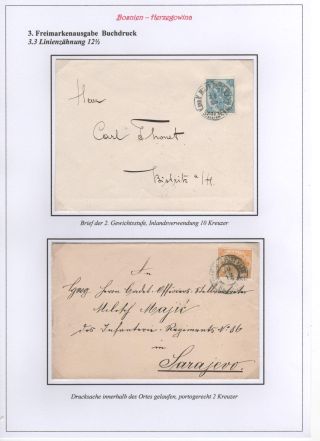 Bosnien – Herzegowina
3. Freimarkenausgabe Buchdruck
3.3 Linienzähnung 12½
Herrn
Carl Thonet
Bistritz a/H.
Brief der 2. Gewichtsstufe, Inlandsverwendung 10 Kreuzer
An
Herrn Cadet-Officiers-Stellvertreter
Miloty Majić
des Infanterie-Regiments No 86
in
Sarajevo.
Drucksache innerhalb des Ortes gelaufen, portogerecht 2 Kreuzer